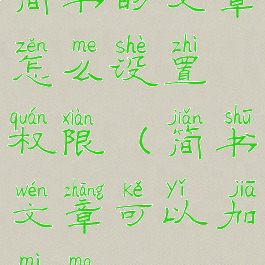 简书的文章
zěn me shè zhì
怎么设置
quán xiàn jiǎn shū
权限（简书
wén zhāng kě yǐ jiā
文章可以加
mì ma